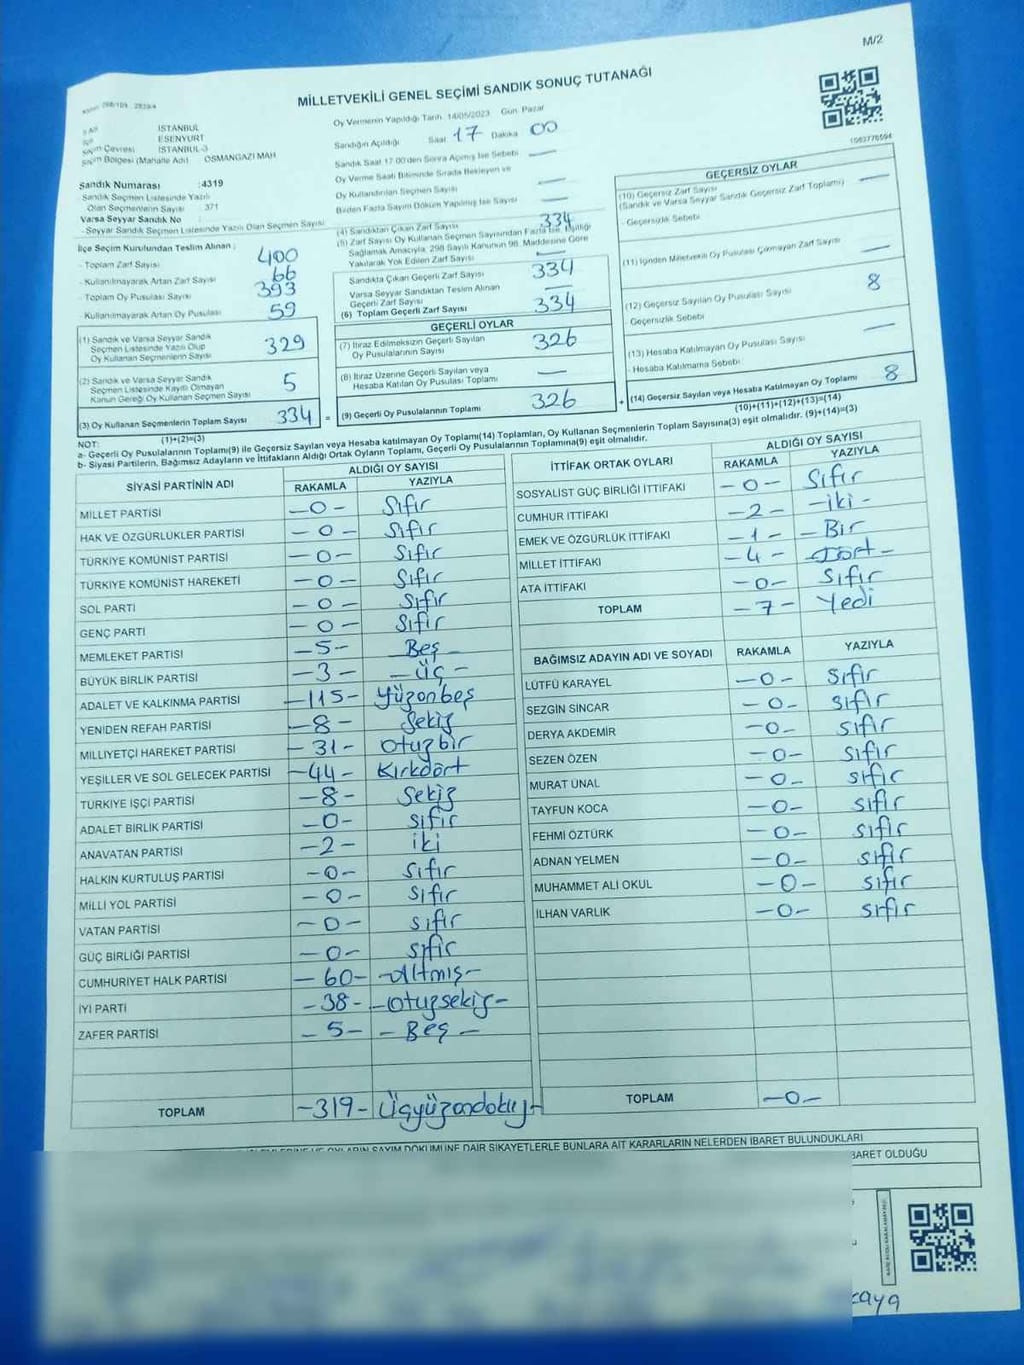 M/2
MİLLETVEKİLİ GENEL SEÇİMİ SANDIK SONUÇ TUTANAĞI
İSTANBUL
ESENYURT
Seçim Çevresi İSTANBUL-3
Seçim Bölgesi (Mahalle Adı) OSMANGAZİ MAH
Sandık Numarası :4319
Sandık Seçmen Listesinde Yazılı
Olan Seçmenlerin Sayısı : 371
Varsa Seyyar Sandık No
- Seyyar Sandık Seçmen Listesinde Yazılı Olan Seçmen Sayısı
Oy Vermenin Yapıldığı Tarih 14/05/2023 Gün: Pazar
Sandığın Açıldığı Saat 17 Dakika 00
Sandık Saat 17:00'den Sonra Açılmış İse Sebebi —
Oy Verme Saati Bitiminde Sırada Bekleyen ve
Oy Kullandırılan Seçmen Sayısı —
Birden Fazla Sayım Döküm Yapılmış İse Sayısı —
1063776594
İlçe Seçim Kurulundan Teslim Alınan :
- Toplam Zarf Sayısı 400
- Kullanılmayarak Artan Zarf Sayısı 66
- Toplam Oy Pusulası Sayısı 393
- Kullanılmayarak Artan Oy Pusulası 59
(1) Sandık ve Varsa Seyyar Sandık
Seçmen Listesinde Yazılı Olup
Oy Kullanan Seçmenlerin Sayısı 329
(2) Sandık ve Varsa Seyyar Sandık
Seçmen Listesinde Kayıtlı Olmayan
Kanun Gereği Oy Kullanan Seçmen Sayısı 5
(3) Oy Kullanan Seçmenlerin Toplam Sayısı 334
(1)+(2)=(3)
(4) Sandıktan Çıkan Zarf Sayısı 334
(5) Zarf Sayısı Oy Kullanan Seçmen Sayısından Fazla İse, Eşitliği
Sağlamak Amacıyla, 298 Sayılı Kanunun 98. Maddesine Göre
Yakılarak Yok Edilen Zarf Sayısı —
Sandıkta Çıkan Geçerli Zarf Sayısı 334
Varsa Seyyar Sandıktan Teslim Alınan
Geçerli Zarf Sayısı —
(6) Toplam Geçerli Zarf Sayısı 334
GEÇERLİ OYLAR
(7) İtiraz Edilmeksizin Geçerli Sayılan
Oy Pusulalarının Sayısı 326
(8) İtiraz Üzerine Geçerli Sayılan veya
Hesaba Katılan Oy Pusulası Toplamı —
= (9) Geçerli Oy Pusulalarının Toplamı 326
GEÇERSİZ OYLAR
(10) Geçersiz Zarf Sayısı —
(Sandık ve Varsa Seyyar Sandık Geçersiz Zarf Toplamı)
- Geçersizlik Sebebi
(11) İçinden Milletvekili Oy Pusulası Çıkmayan Zarf Sayısı —
(12) Geçersiz Sayılan Oy Pusulası Sayısı 8
- Geçersizlik Sebebi
(13) Hesaba Katılmayan Oy Pusulası Sayısı —
- Hesaba Katılmama Sebebi :
+ (14) Geçersiz Sayılan veya Hesaba Katılmayan Oy Toplamı 8
(10)+(11)+(12)+(13)=(14)
NOT:
a- Geçerli Oy Pusulalarının Toplamı(9) ile Geçersiz Sayılan veya Hesaba katılmayan Oy Toplamı(14) Toplamları, Oy Kullanan Seçmenlerin Toplam Sayısına(3) eşit olmalıdır. (9)+(14)=(3)
b- Siyasi Partilerin, Bağımsız Adayların ve İttifakların Aldığı Ortak Oyların Toplamı, Geçerli Oy Pusulalarının Toplamına(9) eşit olmalıdır.
SİYASİ PARTİNİN ADI ALDIĞI OY SAYISI
RAKAMLA YAZIYLA
MİLLET PARTİSİ -0- Sıfır
HAK VE ÖZGÜRLÜKLER PARTİSİ -0- Sıfır
TÜRKİYE KOMÜNİST PARTİSİ -0- Sıfır
TÜRKİYE KOMÜNİST HAREKETİ -0- Sıfır
SOL PARTİ -0- Sıfır
GENÇ PARTİ -0- Sıfır
MEMLEKET PARTİSİ -5- Beş
BÜYÜK BİRLİK PARTİSİ -3- -Üç-
ADALET VE KALKINMA PARTİSİ -115- Yüzonbeş
YENİDEN REFAH PARTİSİ -8- Sekiz
MİLLİYETÇİ HAREKET PARTİSİ -31- Otuzbir
YEŞİLLER VE SOL GELECEK PARTİSİ -44- Kırkdört
TÜRKİYE İŞÇİ PARTİSİ -8- Sekiz
ADALET BİRLİK PARTİSİ -0- sıfır
ANAVATAN PARTİSİ -2- iki
HALKIN KURTULUŞ PARTİSİ -0- sıfır
MİLLİ YOL PARTİSİ -0- sıfır
VATAN PARTİSİ -0- sıfır
GÜÇ BİRLİĞİ PARTİSİ -0- sıfır
CUMHURİYET HALK PARTİSİ -60- -Altmış-
İYİ PARTİ -38- -Otuzsekiz-
ZAFER PARTİSİ -5- -Beş-
TOPLAM -319- Üçyüzondokuz-
İTTİFAK ORTAK OYLARI ALDIĞI OY SAYISI
RAKAMLA YAZIYLA
SOSYALİST GÜÇ BİRLİĞİ İTTİFAKI -0- Sıfır
CUMHUR İTTİFAKI -2- -iki-
EMEK VE ÖZGÜRLÜK İTTİFAKI -1- -Bir
MİLLET İTTİFAKI -4- -Dört-
ATA İTTİFAKI -0- Sıfır
TOPLAM -7- Yedi
BAĞIMSIZ ADAYIN ADI VE SOYADI RAKAMLA YAZIYLA
LÜTFÜ KARAYEL -0- Sıfır
SEZGİN SİNCAR -0- sıfır
DERYA AKDEMİR -0- sıfır
SEZEN ÖZEN -0- sıfır
MURAT ÜNAL -0- sıfır
TAYFUN KOCA -0- sıfır
FEHMİ ÖZTÜRK -0- sıfır
ADNAN YELMEN -0- sıfır
MUHAMMET ALİ OKUL -0- sıfır
İLHAN VARLIK -0- sıfır
TOPLAM -0-
OYLARIN SAYIM DÖKÜMÜNE DAİR ŞİKAYETLERLE BUNLARA AİT KARARLARIN NELERDEN İBARET BULUNDUKLARI
BARET OLDUĞU
kaya